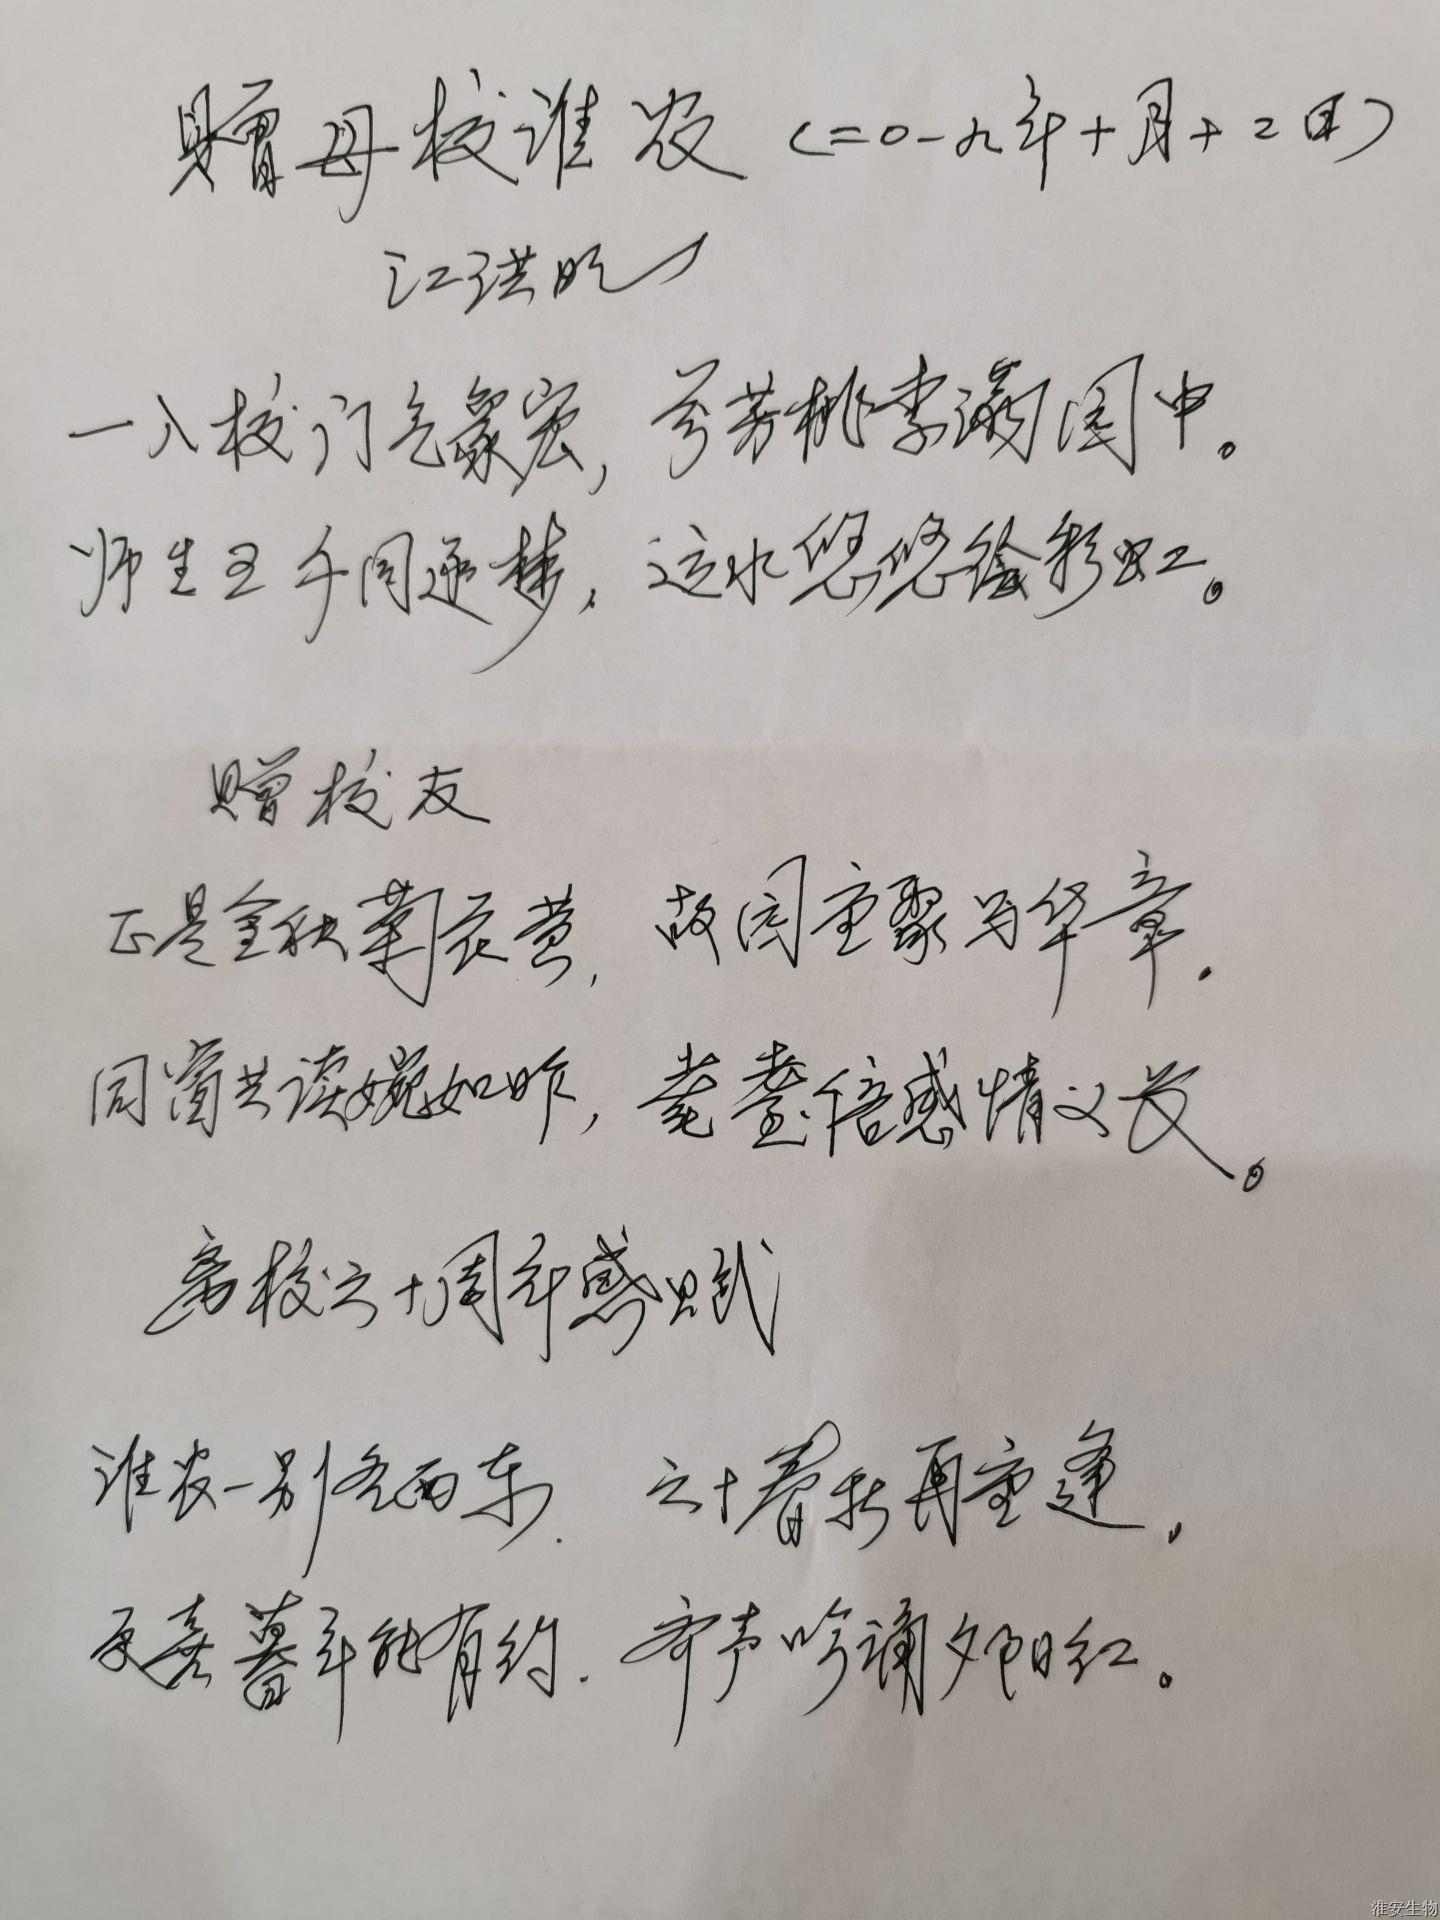 赠母校淮农（二〇一九年十月十二日）
江洪
一入校门气象宏，芬芳桃李满园中。
师生五千同逐梦，运水悠悠绘彩虹。
赠校友
正是金秋菊花黄，故园重聚写华章。
同窗共读婉如昨，耄耋倍感情义长。
离校六十周年感赋
淮农一别各西东，六十春秋再重逢。
更喜暮年能有约，齐声吟诵夕阳红。
淮安生物